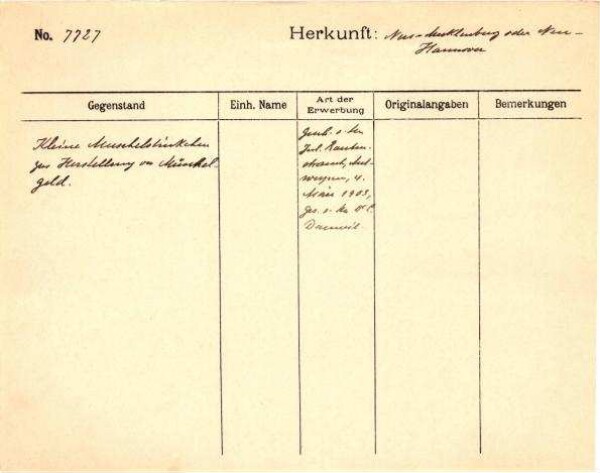 No. 7727
Herkunft: Neu-Mecklenburg oder Neu-
Hannover
Gegenstand
Einh. Name
Art der
Erwerbung
Originalangaben
Bemerkungen
Kleine Muschelstückchen
zur Herstellung von Muschel
geld.
Jul. Rauten-
strauch, Ant-
werpen, 4.
März 1903,